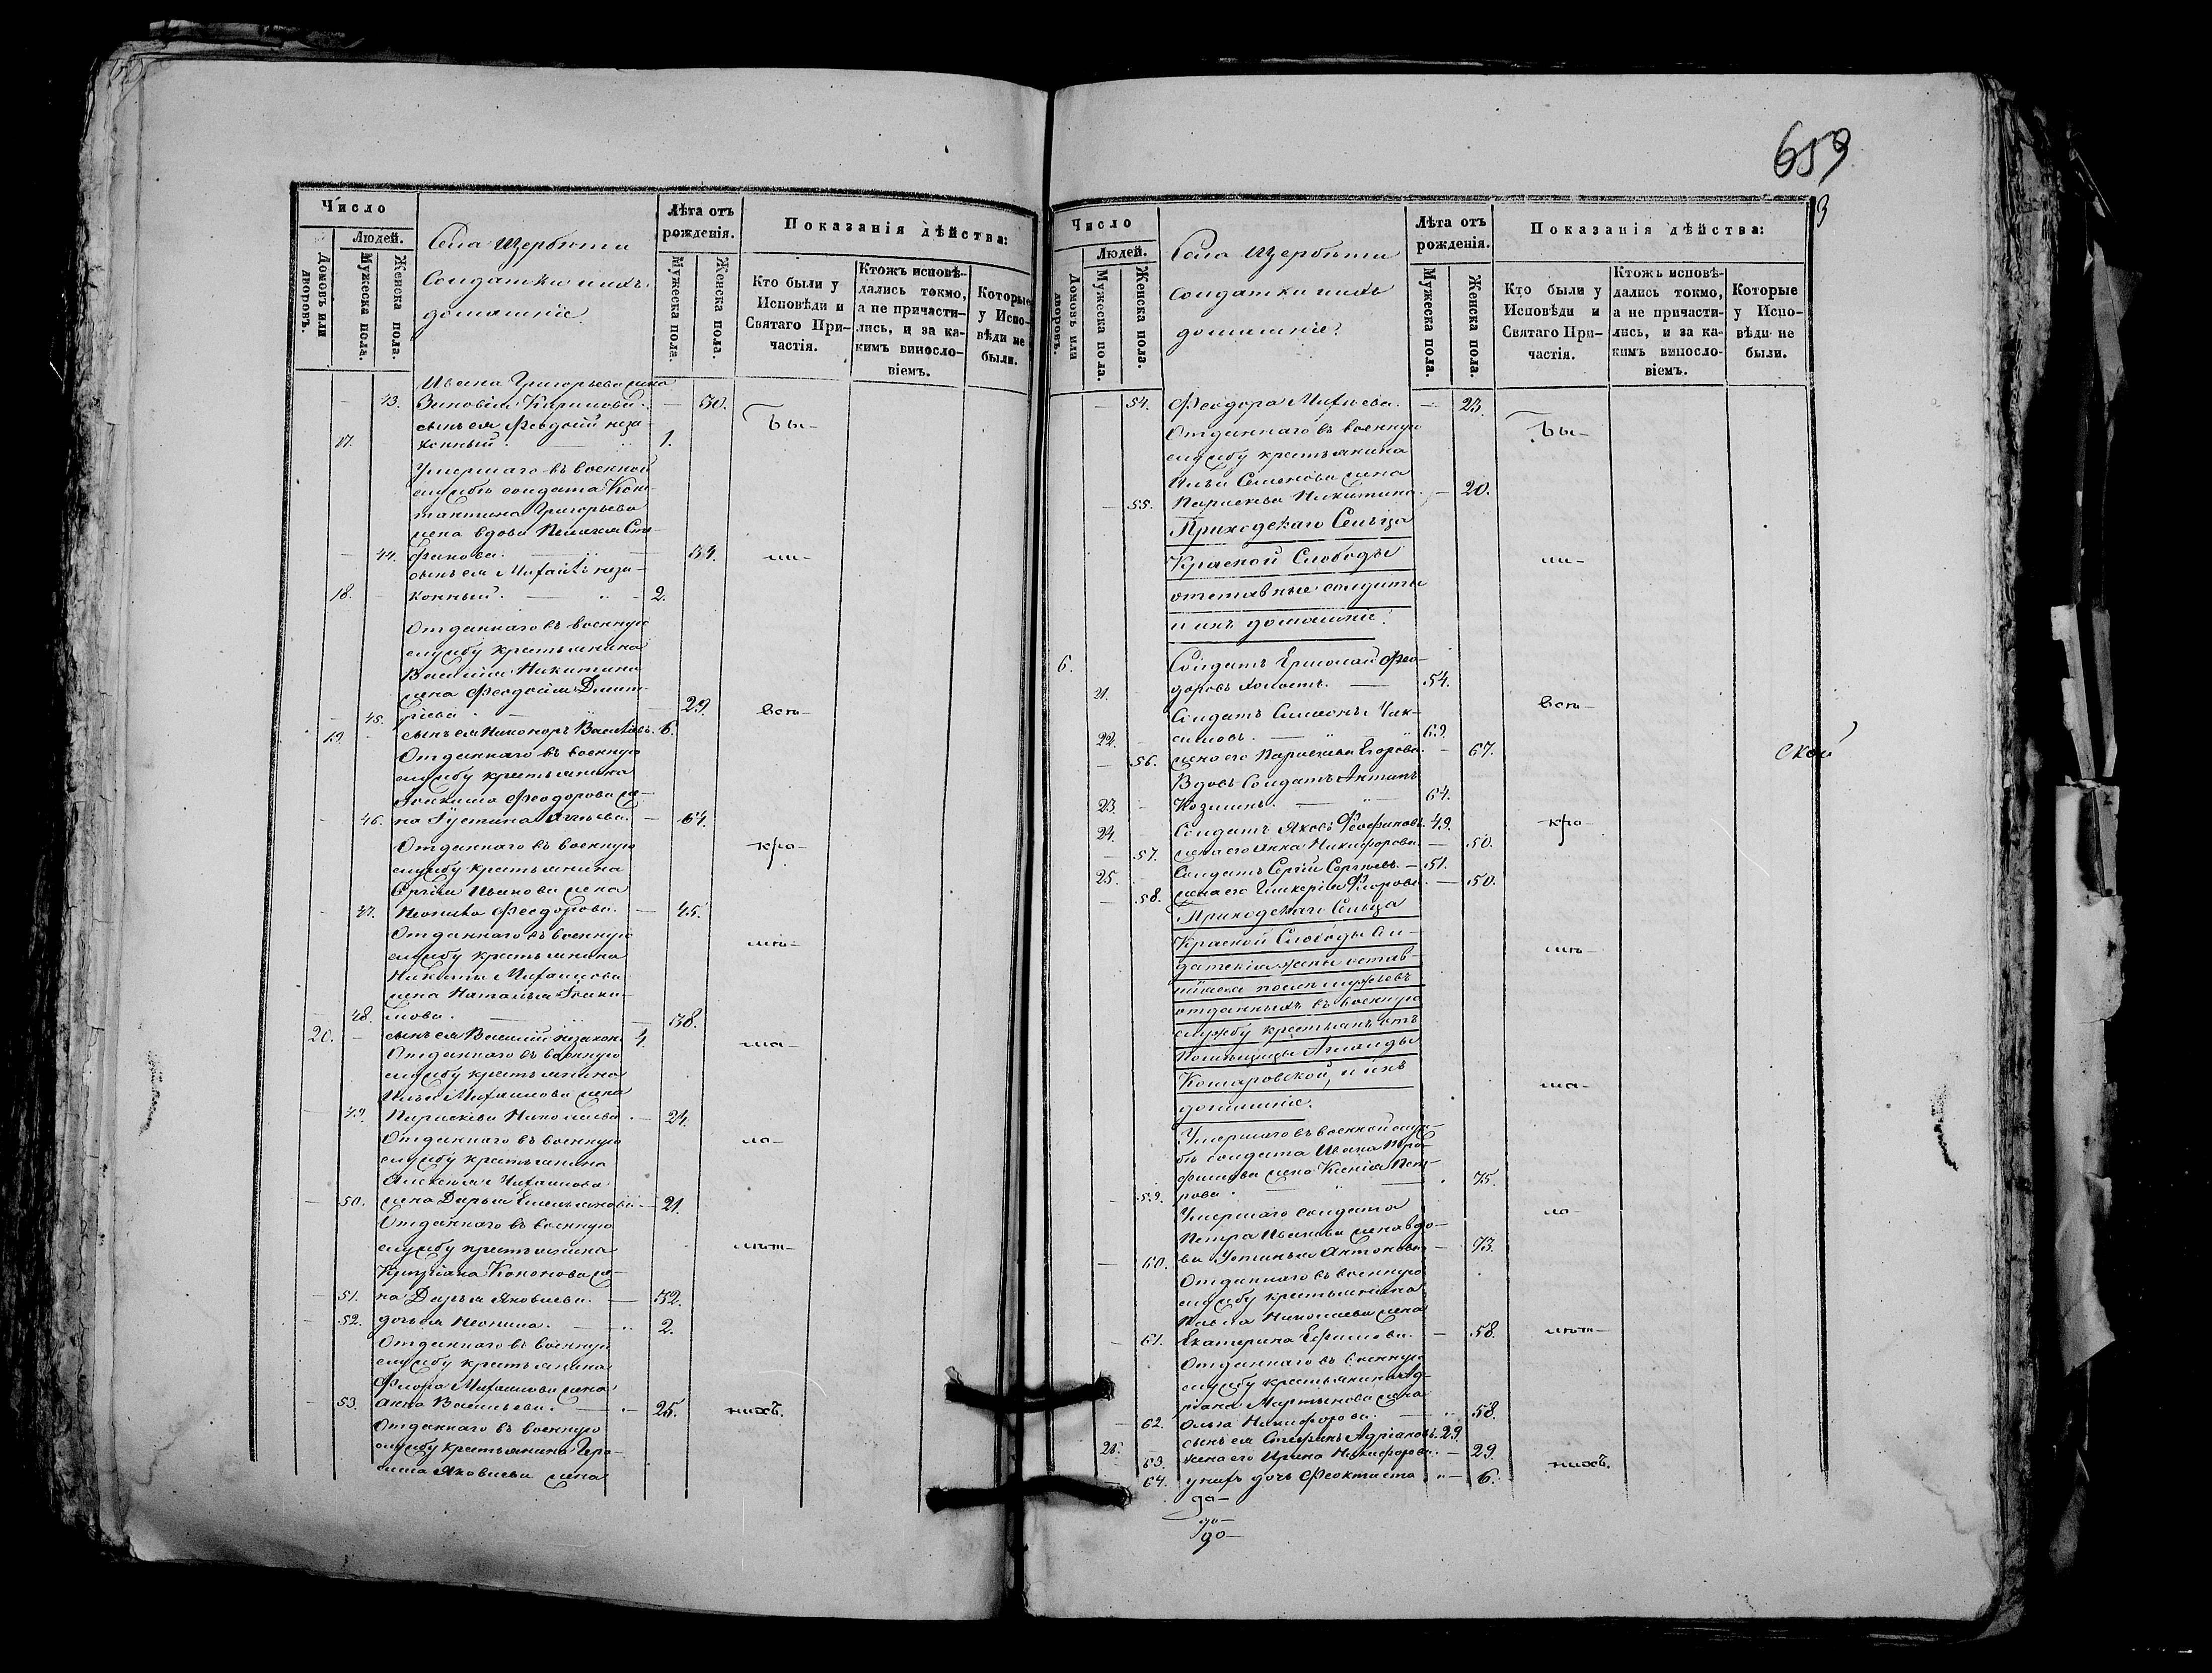 Число
Людей.
Домовъ или дворовъ.
Мужеска пола.
Женска пола.
Села Щербѣти
Солдатки и ихъ
домашніе.
Лѣта отъ рожденія.
Мужеска пола.
Женска пола.
Показанія дѣйства:
Кто были у Исповѣди и Святаго Причастія.
Ктожъ исповѣдались токмо, а не причастились, и за какимъ винословіемъ.
Которые у Исповѣди не были.
Ивана Григорьева жена
43. Зиновія Карпова. — 30.
Бы-
сынъ ея Феодоръ неза-
17. конный. 1.
Умершаго въ военной
службѣ солдата Кон-
стантина Григорьева
жена вдова Пелагея Сте-
44. фанова. 34. ли-
сынъ ея Михаилъ неза-
18. конный. 2.
Отданнаго въ военную
службу крестьянина
Василія Никитина
жена Феодосія Дмит-
45. ріева. 29. всѣ-
19. сынъ ея Никоноръ Васильевъ. 6.
Отданнаго въ военную
службу крестьянина
Іоакима Феодорова же-
46. на Іустина Ильева. — 64.
Отданнаго въ военную кро-
службу крестьянина
Сергія Иванова жена
47. Неонила Феодорова. — 45.
Отданнаго въ военную
службу крестьянина мѣ-
Никиты Михаилова
жена Наталья Іоаки-
48. мова. 38.
20. сынъ ея Василій незакон. 4. ма-
Отданнаго въ военную
службу крестьянина
Ильи Михаилова жена
49. Параскева Николаева. — 24.
Отданнаго въ военную ло-
службу крестьянина
Алексія Михаилова
50. жена Дарья Емельянова — 21.
Отданнаго въ военную
службу крестьянина лѣт-
Кипріана Кононова же-
51. на Дарья Яковлева. — 32.
52. дочь ея Неонила. 2.
Отданнаго въ военную
службу крестьянина
Флора Михаилова жена
53. Анна Васильева. 25. нихъ.
Отданнаго въ военную
службу крестьянина Гера-
сима Яковлева жена
659
Число
Людей.
Домовъ или дворовъ.
Мужеска пола.
Женска пола.
Села Щербѣти
Солдатки и ихъ
домашніе.
Лѣта отъ рожденія.
Мужеска пола.
Женска пола.
Показанія дѣйства:
Кто были у Исповѣди и Святаго Причастія.
Ктожъ исповѣдались токмо, а не причастились, и за какимъ винословіемъ.
Которые у Исповѣди не были.
54. Феодора — 23.
Отданнаго въ военную Бы-
службу крестьянина
Ильи Семенова жена
55. Параскева Никитина. — 20.
Приходскаго Сельца
Красной Слободы ли-
отставные солдаты
и ихъ домашніе.
6. Солдатъ Ермолай Фео-
21. доровъ холостъ. — 54.
всѣ-
Солдатъ Симеонъ Мак-
22. симовъ. 69.
56. жена его Параскева Егорова. — 67.
ской
Вдовъ Солдатъ Антипъ
23. Козминъ. 64.
24. Солдатъ Яковъ Феофановъ. 49. кро-
57. жена его Анна Никифорова. — 50.
25. Солдатъ Сергій Сергѣевъ. — 51.
58. жена его Гликерія Флорова. — 50.
Приходскаго Сельца
Красной Слободы Сол-
датскія жены остав- мѣ-
шіяся послѣ мужьевъ
отданныхъ въ военную
службу крестьянъ отъ
помѣщицы
Комаровской, и ихъ ма-
домашніе.
Умершаго въ военной служ-
бѣ солдата Ивана Тро-
фимова жена Ксенія Пет-
59. рова. 75.
Умершаго солдата ло-
Петра Иванова жена вдо-
60. ва Устинья Антонова — 73.
Отданнаго въ военную
службу крестьянина
Павла Николаева жена
61. Екатерина Ефимова. — 58. лѣт-
Отданнаго въ военную
службу крестьянина Ад-
ріана Мартынова жена
62. Ольга Никифорова. 58.
26. сынъ ея Стефанъ Адріановъ. 29.
63. жена его Ирина Никифорова. — 29. нихъ.
64. у нихъ дочь Феоктиста 6.
до-
до-
до-